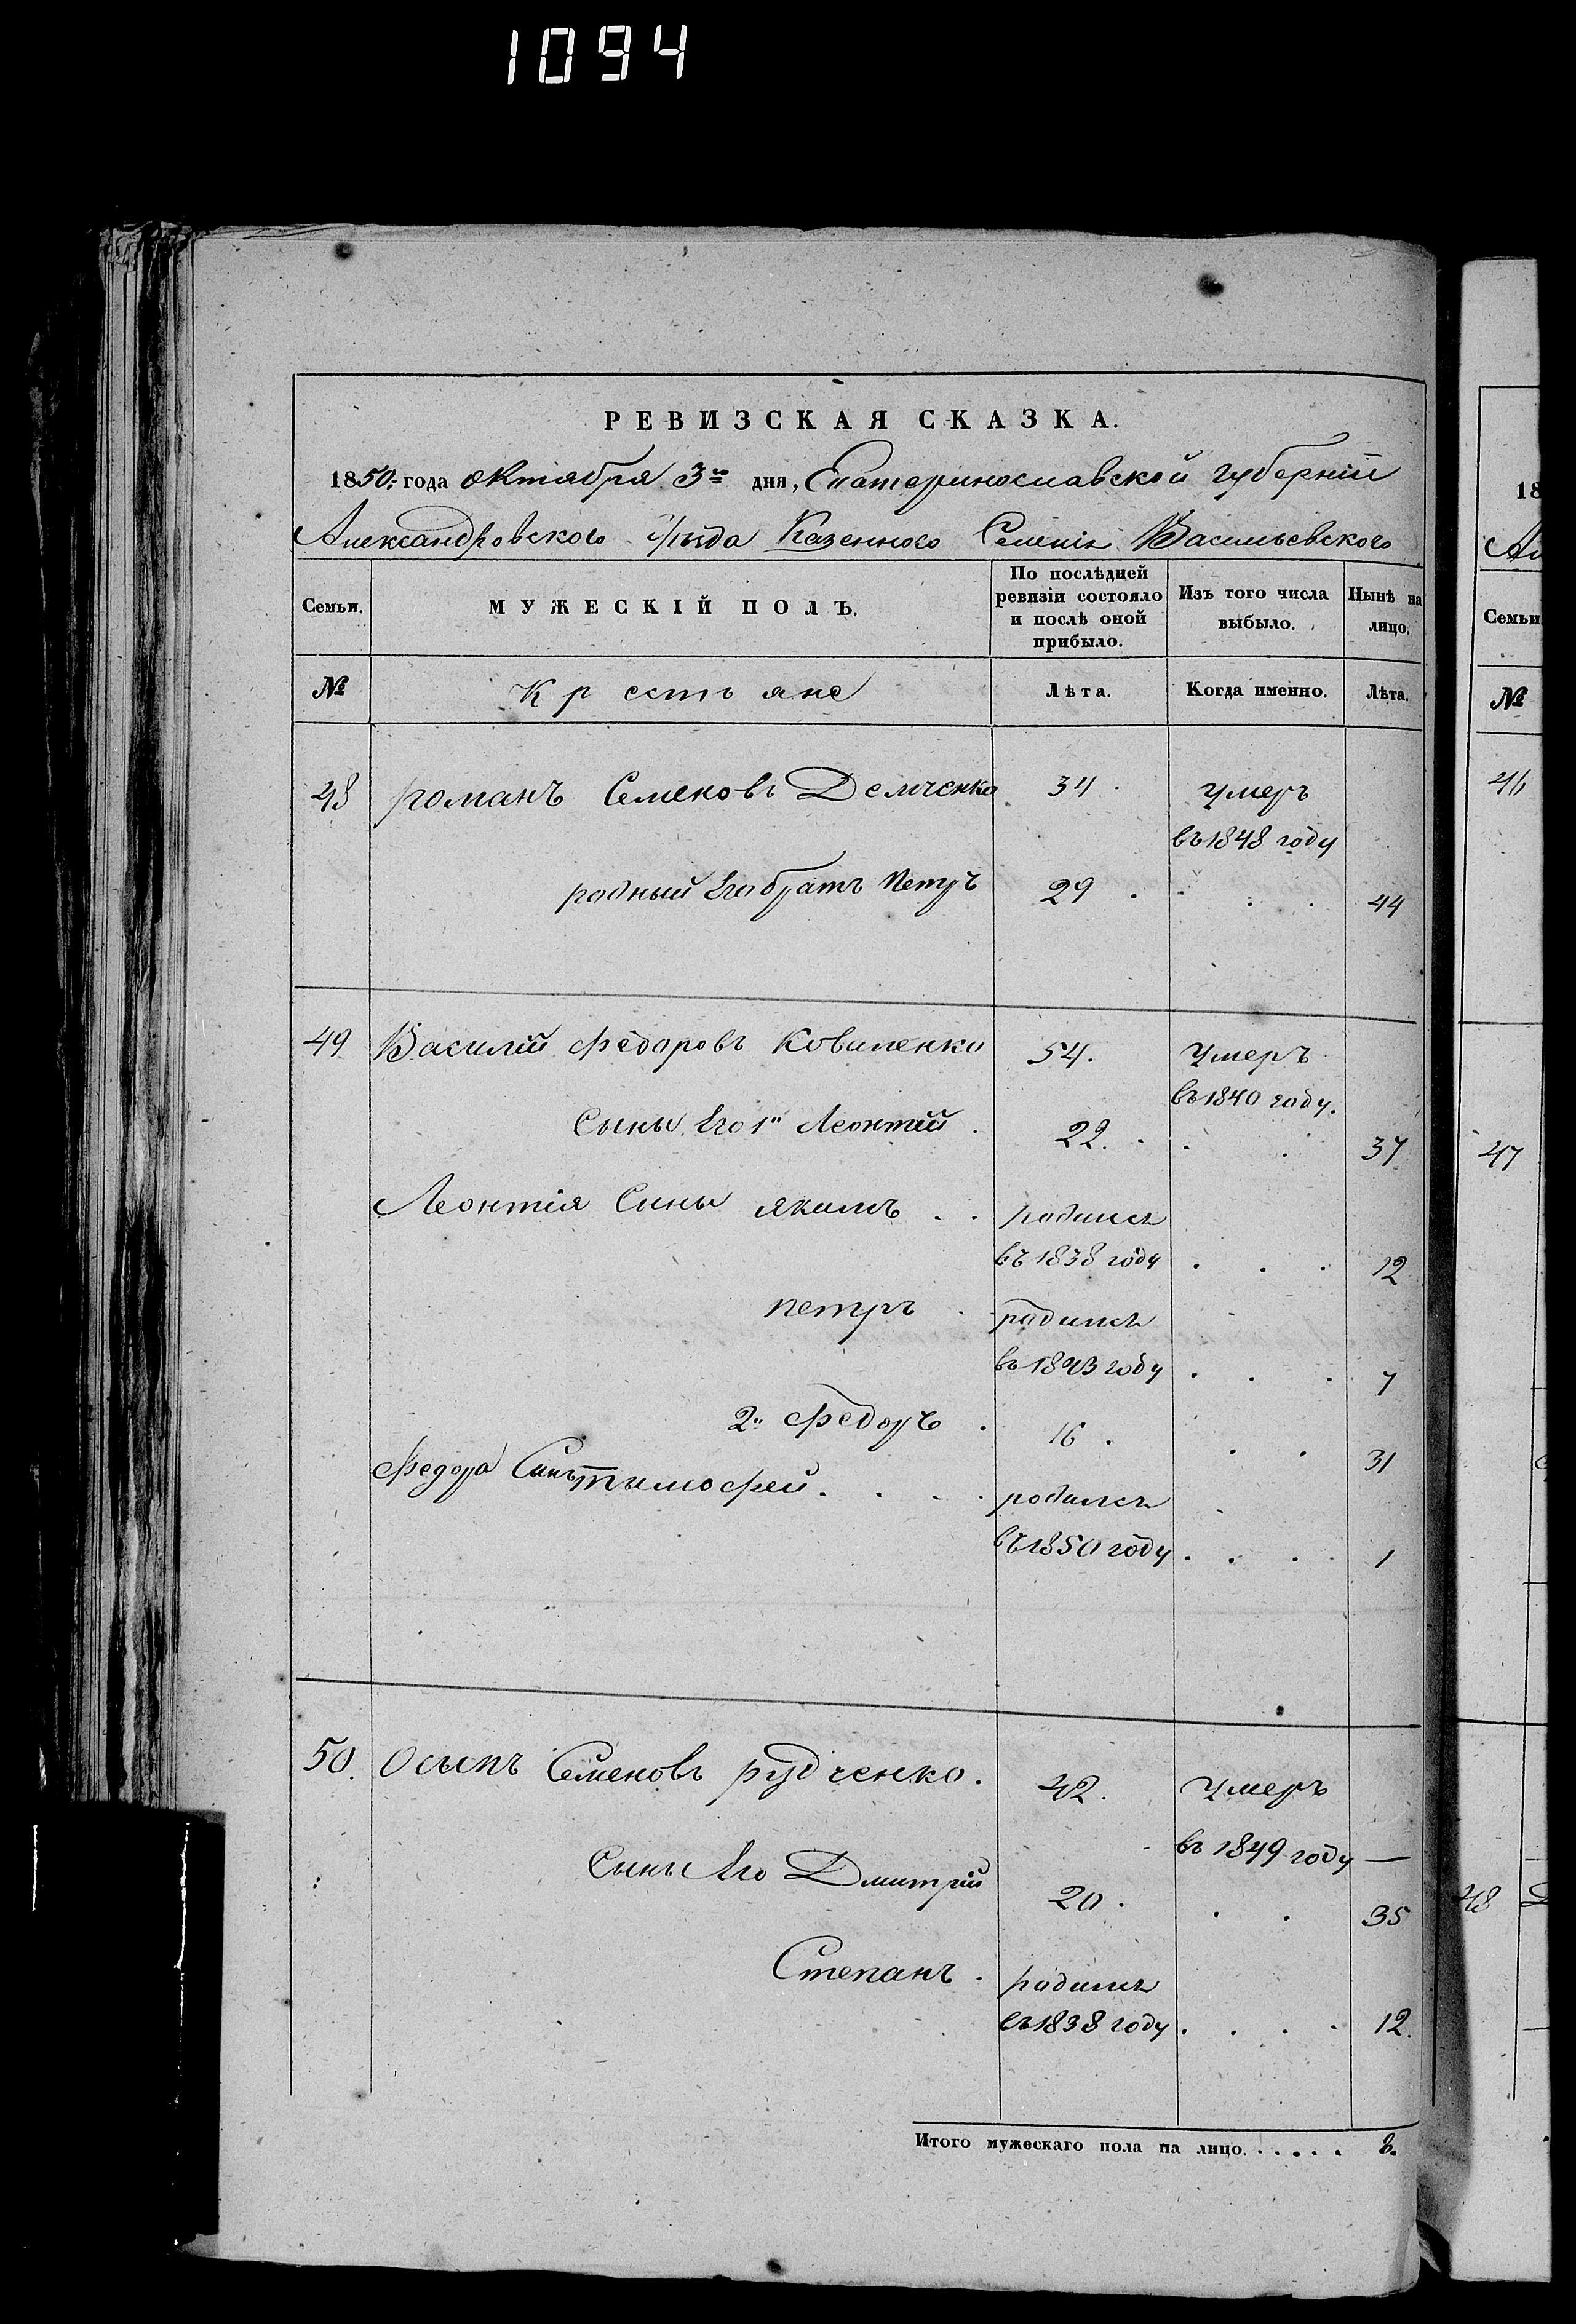 1094
РЕВИЗСКАЯ СКАЗКА.
1850: года октября 3го дня, Екатеринославской губернiи
Александровского уѣзда Казенного Селенія Васильевского
Семьи. МУЖЕСКІЙ ПОЛЪ. По послѣдней ревизіи состояло и послѣ оной прибыло. Изъ того числа выбыло. Нынѣ на лицо.
№ Крестьяне Лѣта. Когда именно. Лѣта.
48 романъ Семеновъ Демченко 34 умеръ
въ 1848 году
родный Его братъ Петръ 29 44
49 Василій Федоровъ Коваленко 54. умеръ
въ 1840 году.
Сыны Его 1й Леонтій 22. 37
Леонтія Сыны якимъ родился
въ 1838 году 12
петръ родился
въ 1843 году 7
2й Федоръ 16 31
Федора Сынъ тымофей родился
въ 1850 году 1
50. Осыпъ Семеновъ рудченко. 42. умеръ
въ 1849 году —
Сынъ Его Дмитрій 20. 35
Степанъ родился
въ 1838 году 12.
Итого мужескаго пола на лицо. 8.
18
Ал
Семьи
№
46
47
48 Д